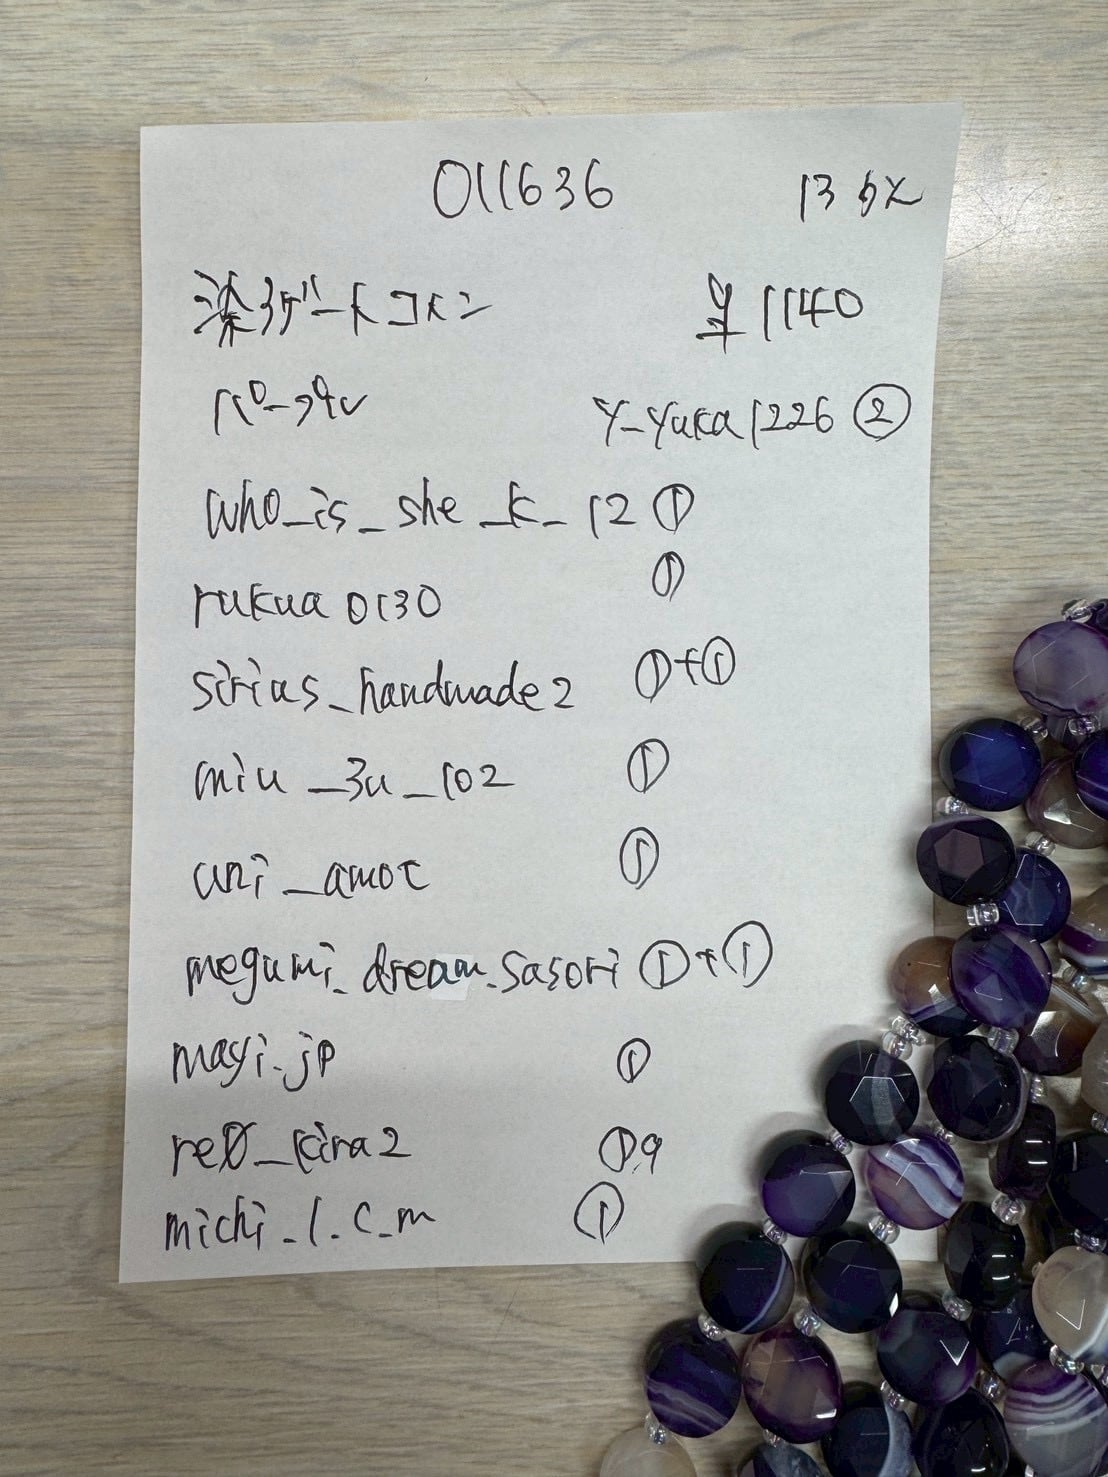 011636 13 6×
染アゲートコイン ¥1140
パープル Y_yuka1226 ②
who_is_she_k_12 ①
rukua0130 ①
sirius_handmade2 ①+①
miu_3u_102 ①
uni_amoc ①
megumi_dream.sasori ①+①
mayi.jp ①
re0_kira2 ①9
michi_1.c_m ①